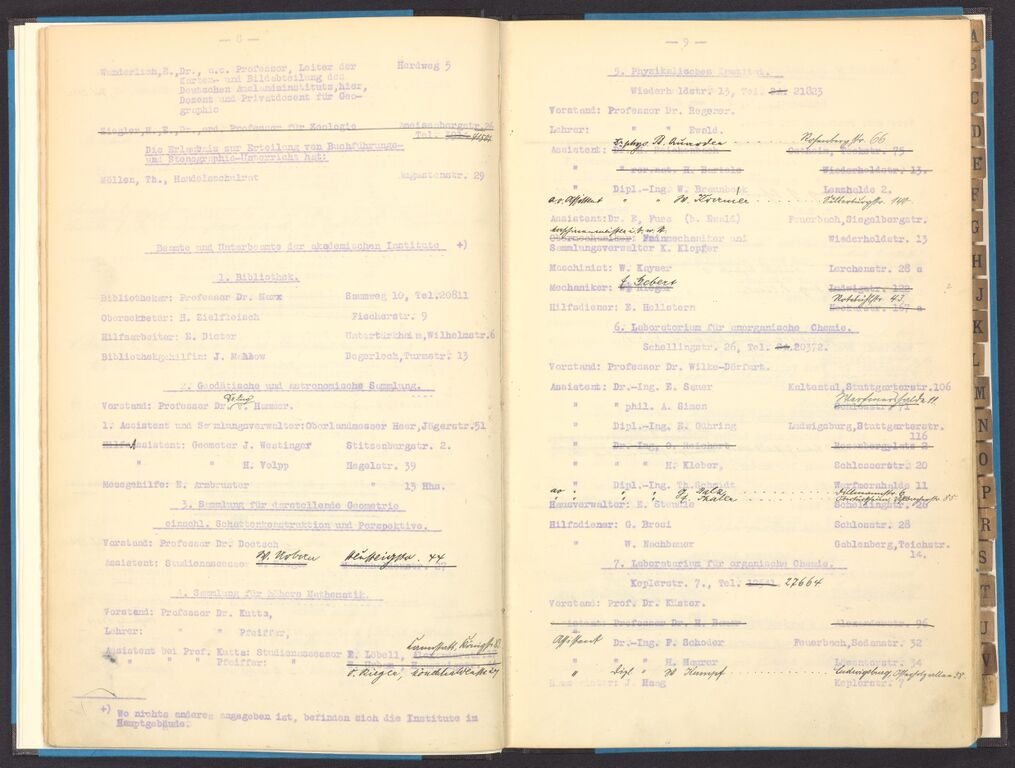 — 8 —
Wunderlich, E., Dr., a.o. Professor, Leiter der Hardweg 5
Karten- und Bildabteilung des
Deutschen Auslandsinstituts, hier,
Dozent und Privatdozent für Geo-
graphie
Ziegler, H. E., Dr., ord. Professor für Zoologie Ameisenbergstr. 26
Tel.
Die Erlaubnis zur Erteilung von Buchführungs-
und Stenographie-Unterricht hat:
Möllen, Th., Handelsschulrat Augustenstr. 29
Beamte und Unterbeamte der akademischen Institute +)
1. Bibliothek.
Bibliothekar: Professor Dr. Marx Saumweg 10, Tel. 20811
Obersekretär: H. Zielfleisch Fischerstr. 9
Hilfsarbeiter: E. Dieter Untertürkheim, Wilhelmstr. 6
Bibliothekgehilfin: J. Degerloch, Turmstr. 13
2. Geodätische und astronomische Sammlung.
Vorstand: Professor Dr. v. Hammer.
1. Assistent und Sammlungsverwalter: Oberlandmesser Heer, Jägerstr. 51
Hilfs Assistent: Geometer J. Westinger Stitzenburgstr. 2.
" " H. Volpp Hegelstr. 39
Messgehilfe: E. Armbruster " 13 Hhs.
3. Sammlung für darstellende Geometrie
einschl. Schattenkonstruktion und Perspektive.
Vorstand: Professor Dr. Doetsch
Assistent: Studienassessor
4. Sammlung für höhere Mathematik.
Vorstand: Professor Dr. Kutta,
Lehrer: " " Pfeiffer,
Cannstatt, Königstr.
Assistent bei Prof. Kutta: Studienassessor E. Löbell,
" " " Pfeiffer: "
+) Wo nichts anderes angegeben ist, befinden sich die Institute im
Hauptgebäude.
— 9 —
5. Physikalisches Institut.
Wiederholdstr. 13, Tel. 21823
Vorstand: Professor Dr. Regener.
Lehrer: " " Ewald.
Rosenbergstr. 66
Assistent: Ostheim, Teckstr. 75
" " rer.nat. H. Bartels Wiederholdstr. 13.
" Dipl.-Ing. W. Braunbek Lenzhalde 2.
a.o. Assistent " " W. Kremer
Assistent: Dr. E. Fues (b. Ewald) Feuerbach, Siegelbergstr.
Obermechaniker: Feinmechaniker und Wiederholdstr. 13
Sammlungsverwalter K. Klopfer
Maschinist: W. Kayser Lerchenstr. 28 a
Mechaniker: Ludwigstr. 122
Rotebühlstr. 43
Hilfsdiener: E. Hellstern
6. Laboratorium für anorganische Chemie.
Schellingstr. 26, Tel. 20372.
Vorstand: Professor Dr. Wilke-Dörfurt.
Assistent: Dr.-Ing. E. Sauer Kaltental, Stuttgarterstr. 106
" " phil. A. Simon
" Dipl.-Ing. E. Gühring Ludwigsburg, Stuttgarterstr.
116
" Dr.-Ing. G. Reichert Rosenbergplatz 2
" " " H. Kleber, Schlosserstr. 20
" Dipl.-Ing. Th. Schmidt Werfmershalde 11
Hausverwalter: E. Schellingstr. 26
Hilfsdiener: G. Brosi Schlosstr. 28
" W. Nachbauer Gablenberg, Teichstr.
14.
7. Laboratorium für organische Chemie.
Keplerstr. 7., Tel. 27664
Vorstand: Prof. Dr. Küster.
Assistent: Professor Dr. H. Bauer Alexanderstr. 96
Assistent Dr.-Ing. F. Schoder Feuerbach, Sedanstr. 32
" " " H. Maurer Löwentorstr. 34
" Dipl " W Kumpf
Hausmeister: J. Haag Keplerstr. 7
A
B
C
D
E
F
G
H
J
K
L
M
N
O
P
R
S
T
U
V